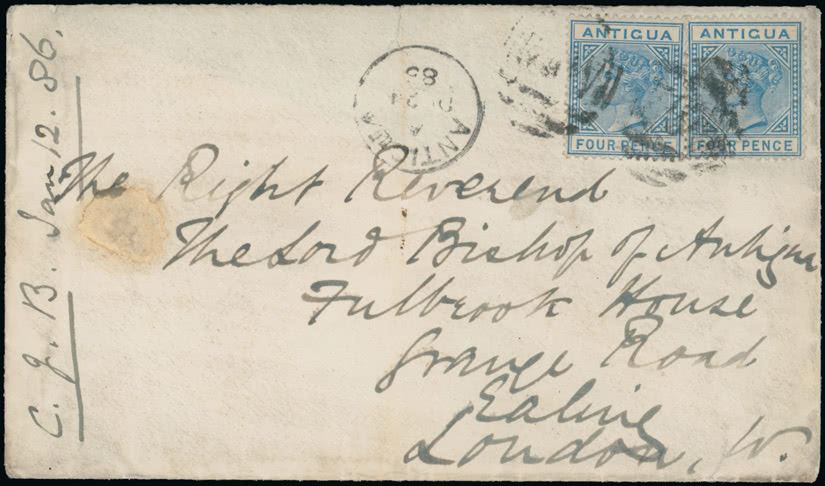 ANTIGUA ANTIGUA
FOUR PENCE FOUR PENCE
ANTIGUA
A
24
85
The Right Reverend
The Lord Bishop of Antigua
Fulbrook House
Grange Road
Ealing
London, W.
C. J. B. Jan 12. 86.